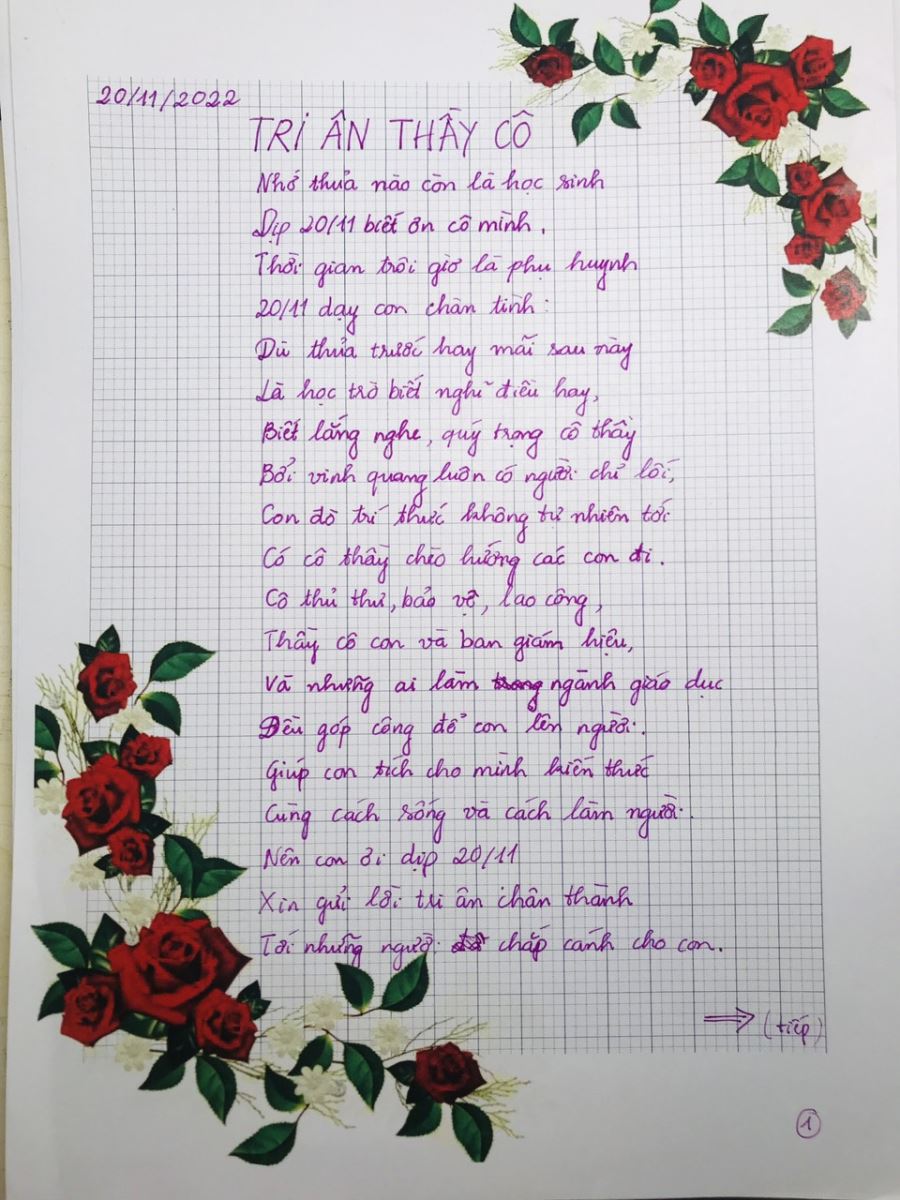 20/11/2022
TRI ÂN THẦY CÔ
Nhớ thưở nào còn là học sinh
Dịp 20/11 biết ơn cô mình.
Thời gian trôi giờ là phụ huynh
20/11 dạy con chân tình:
Dù thưở trước hay mãi sau này
Là học trò biết nghĩ điều hay,
Biết lắng nghe, quý trọng cô thầy
Bởi vinh quang luôn có người chỉ lối,
Con đò trí thức không tự nhiên tới
Có cô thầy chèo hướng các con đi.
Cô thủ thư, bảo vệ, lao công,
Thầy cô con và ban giám hiệu,
Và những ai làm ngành giáo dục
Đều góp công để con lên người.
Giúp con tích cho mình kiến thức
Cùng cách sống và cách làm người.
Nên con ơi dịp 20/11
Xin gửi lời tri ân chân thành
Tới những người chắp cánh cho con.
⟹ (tiếp)
1